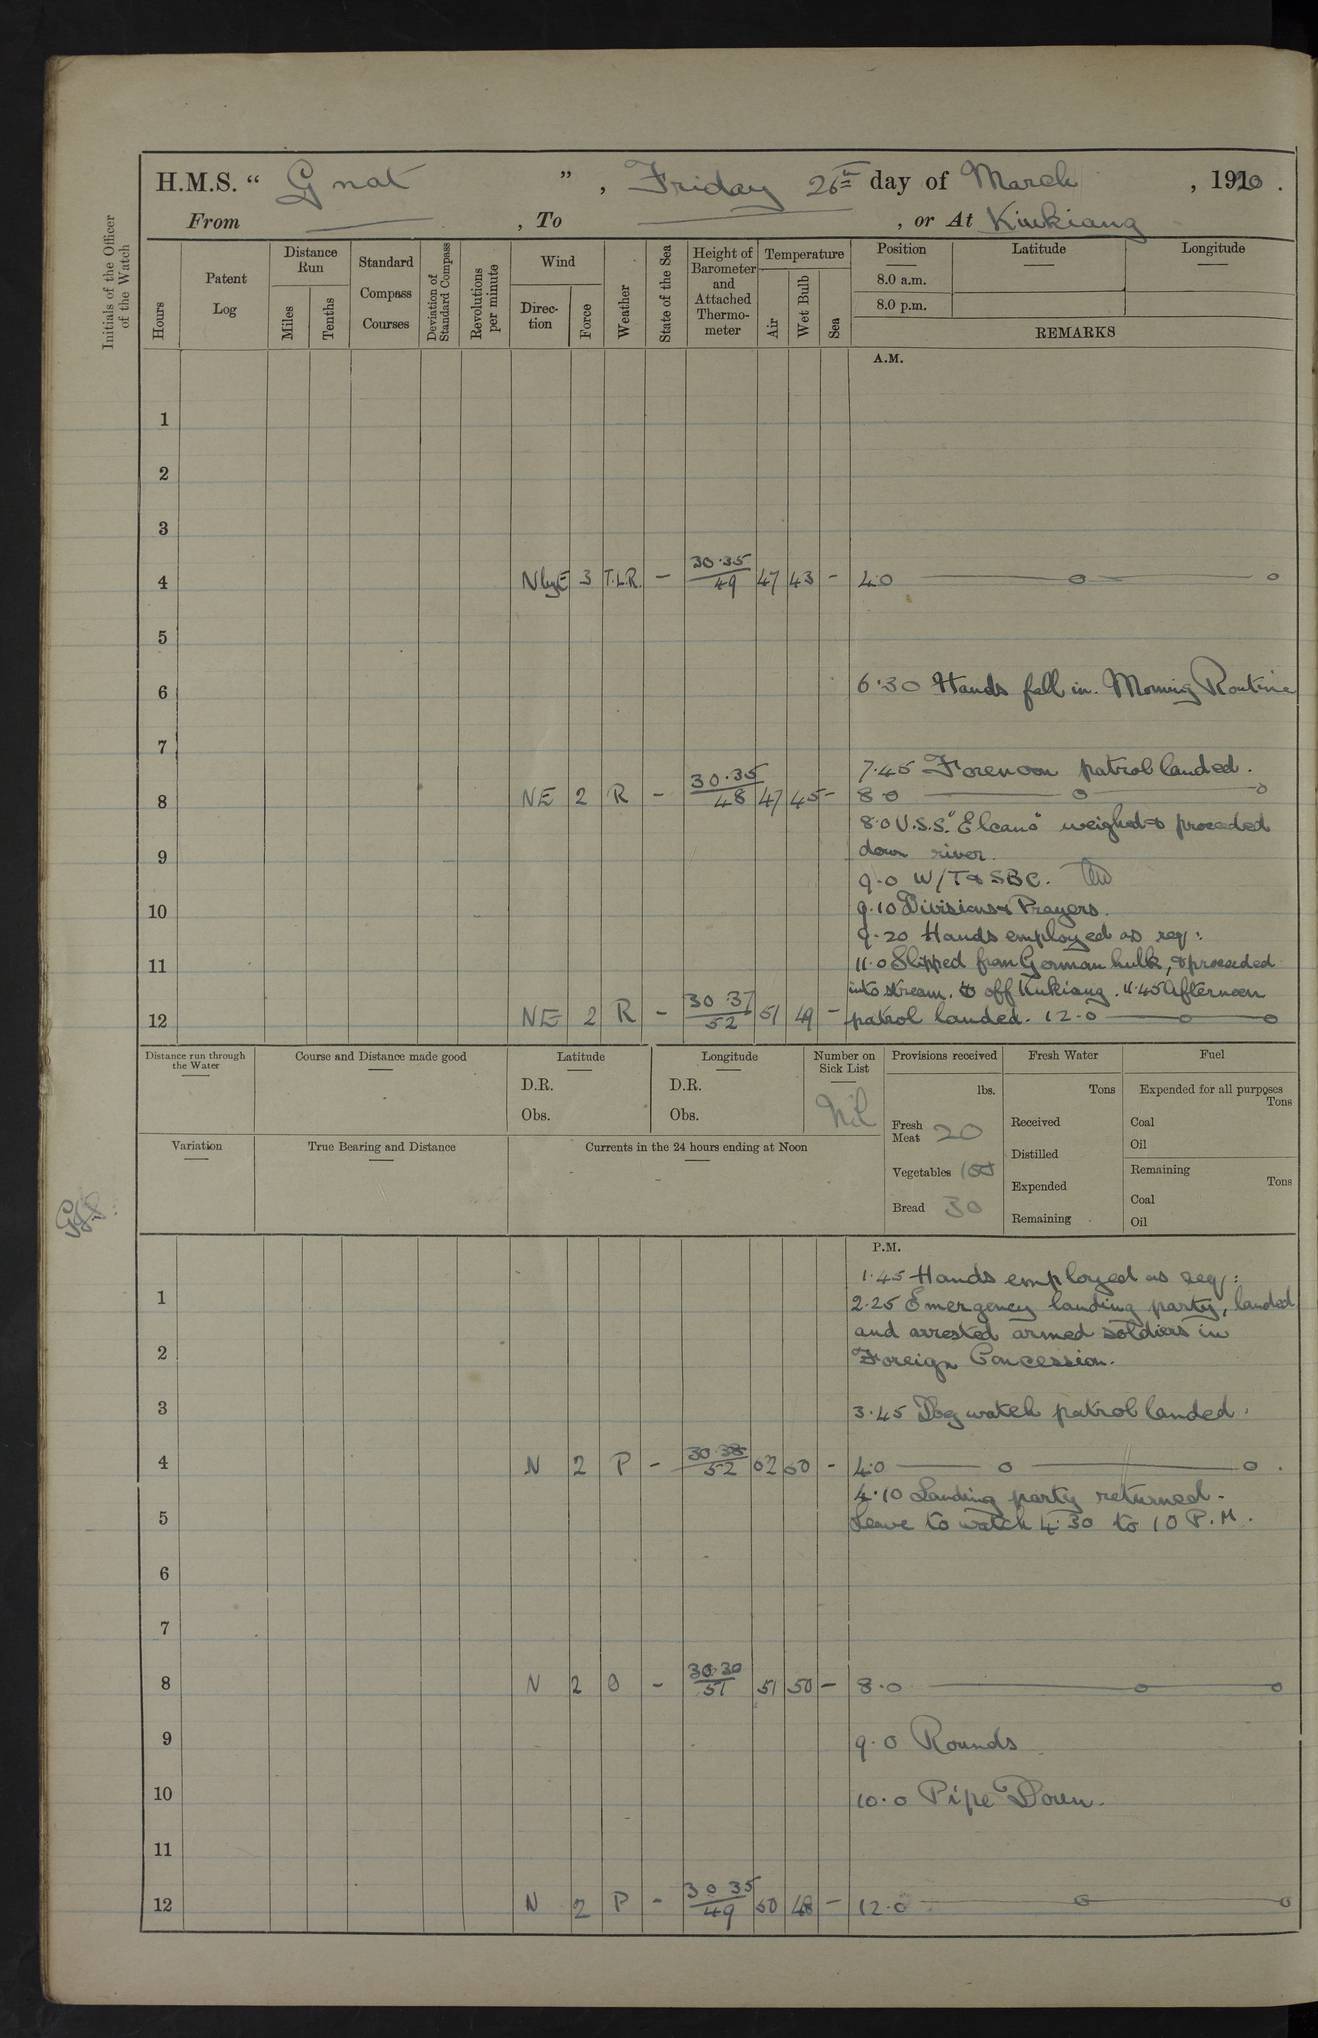 H.M.S. “ Gnat ” , Friday 26th day of March , 1920 .
From — , To — , or At Kiukiang
Initials of the Officer of the Watch
Hours
Patent Log
Distance Run
Miles
Tenths
Standard Compass Courses
Deviation of Standard Compass
Revolutions per minute
Wind
Direc-tion
Force
Weather
State of the Sea
Height of Barometer and Attached Thermo-meter
Temperature
Air
Wet Bulb
Sea
Position
8.0 a.m.
8.0 p.m.
Latitude
Longitude
REMARKS
A.M.
1
2
3
4 NbyE 3 T.L.R. - 30.35/49 47 43 - 4.0 —o—o
5
6 6.30 Hands fell in. Morning Routine
7
7.45 Forenoon patrol landed.
8 NE 2 R - 30.35/48 47 45 - 8.0 —o—o
8.0 U.S.S. "Elcano" weighed & proceeded
9 down river.
9.0 W/T & SBC.
10 9.10 Divisions & Prayers.
9.20 Hands employed as req:
11 11.0 Slipped from German hulk, & proceeded
into stream. off Kukiang. 11.45 Afternoon
12 NE 2 R - 30.37/52 51 49 - patrol landed. 12.0 —o—o
Distance run through the Water
Course and Distance made good
Latitude
D.R.
Obs.
Longitude
D.R.
Obs.
Number on Sick List
Nil
Provisions received
lbs.
Fresh Meat 20
Vegetables 100
Bread 30
Fresh Water
Tons
Received
Distilled
Expended
Remaining
Fuel
Expended for all purposes
Tons
Coal
Oil
Remaining
Tons
Coal
Oil
Variation
True Bearing and Distance
Currents in the 24 hours ending at Noon
P.M.
1.45 Hands employed as req:
1 2.25 Emergency landing party, landed
and arrested armed soldiers in
2 Foreign Concession.
3 3.45 Dog watch patrol landed.
4 N 2 P - 30.38/52 52 50 - 4.0 —o—o .
4.10 Landing party returned.
5 Leave to watch 4.30 to 10 P.M.
6
7
8 N 2 O - 30.30/51 51 50 - 8.0 —o—o
9 9.0 Rounds
10 10.0 Pipe Down.
11
12 N 2 P - 30 35/49 50 48 - 12.0 —o—o